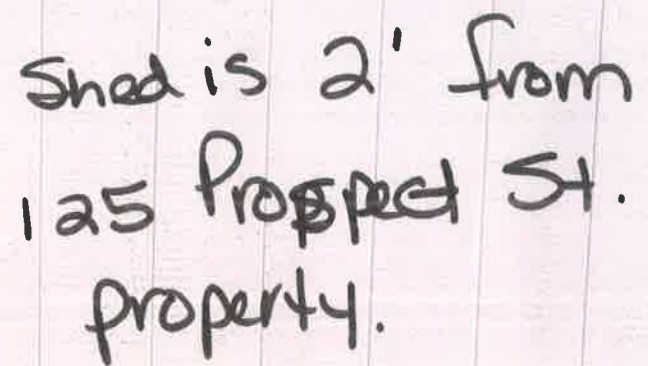 Shed is 2' from
125 Prospect St.
property.